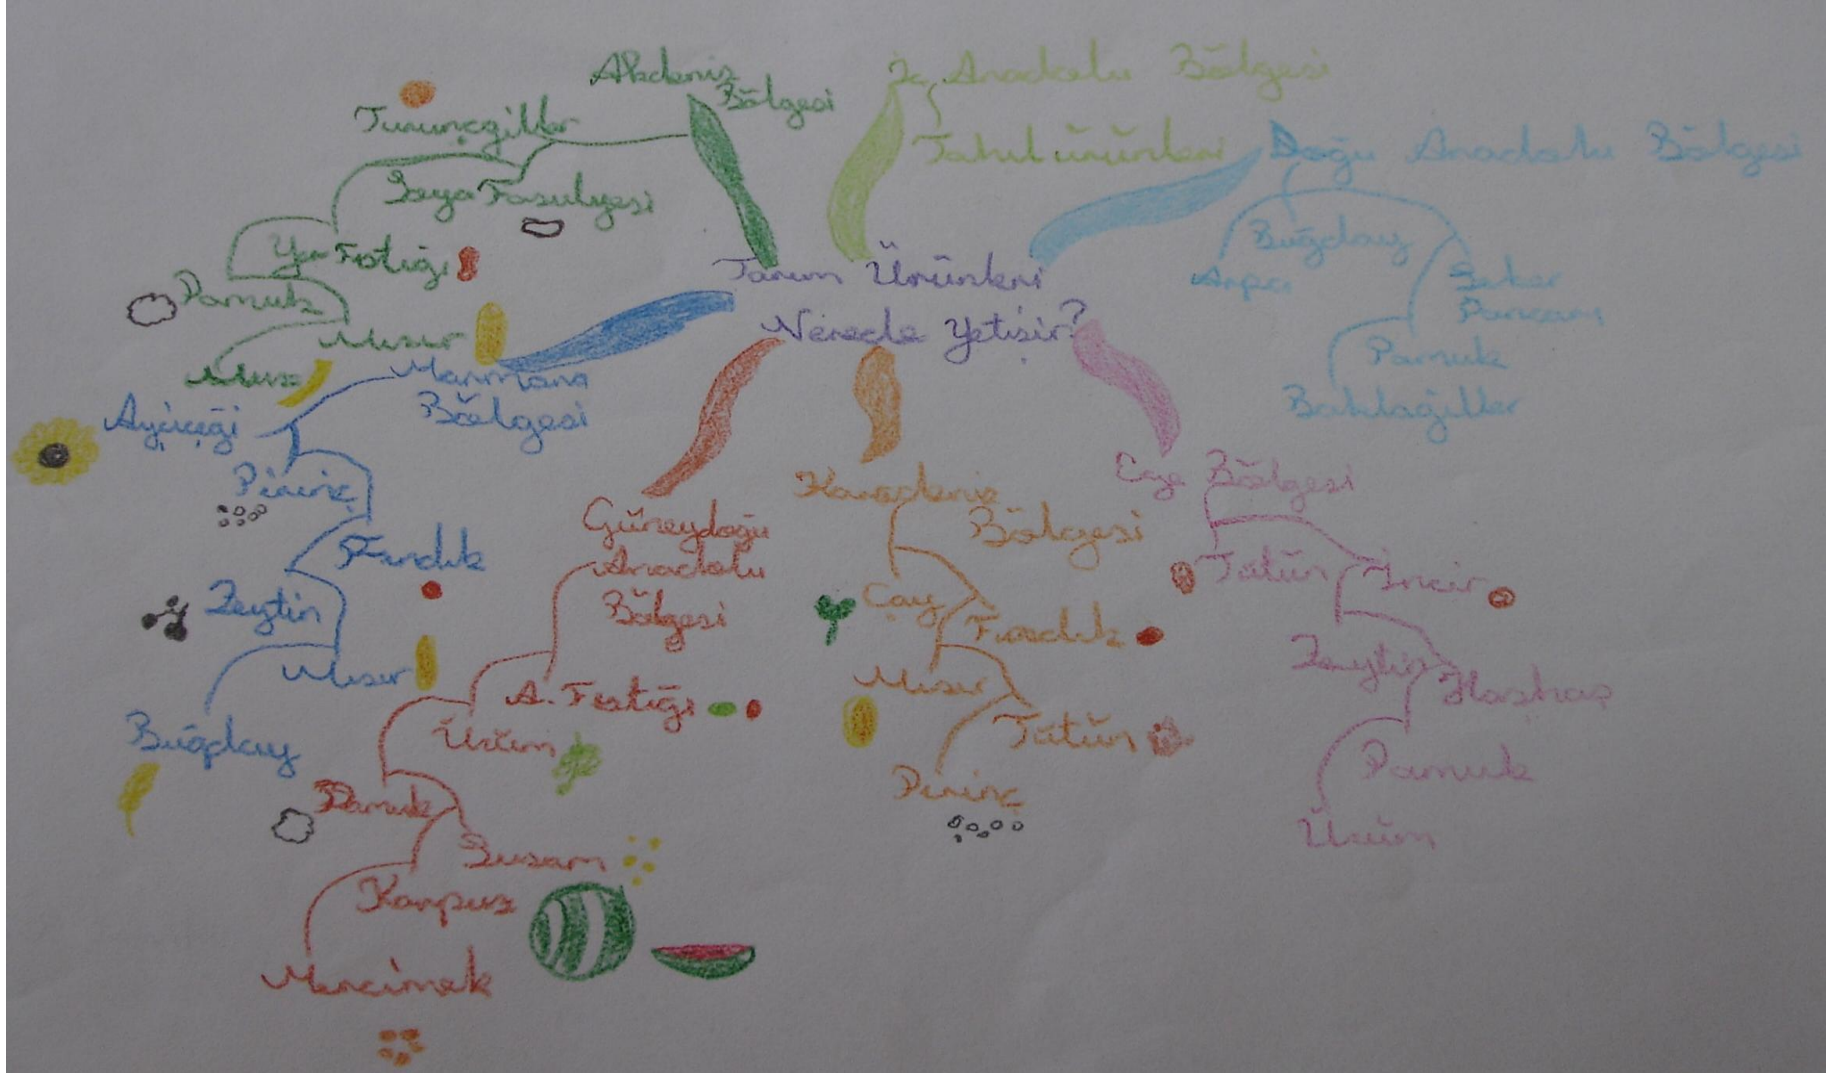 Tarım Ürünleri
Nerede Yetişir?
Akdeniz
Bölgesi
Turunçgiller
Soya Fasulyesi
Yer Fıstığı
Pamuk
Mısır
Muz
İç Anadolu Bölgesi
Tahıl ürünleri
Doğu Anadolu Bölgesi
Buğday
Arpa
Şeker
Pancarı
Pamuk
Baklagiller
Marmara
Bölgesi
Ayçiçeği
Pirinç
Fındık
Zeytin
Mısır
Buğday
Güneydoğu
Anadolu
Bölgesi
A. Fıstığı
Üzüm
Pamuk
Susam
Karpuz
Mercimek
Karadeniz
Bölgesi
Çay
Fındık
Mısır
Tütün
Pirinç
Ege Bölgesi
Tütün
İncir
Zeytin
Haşhaş
Pamuk
Üzüm